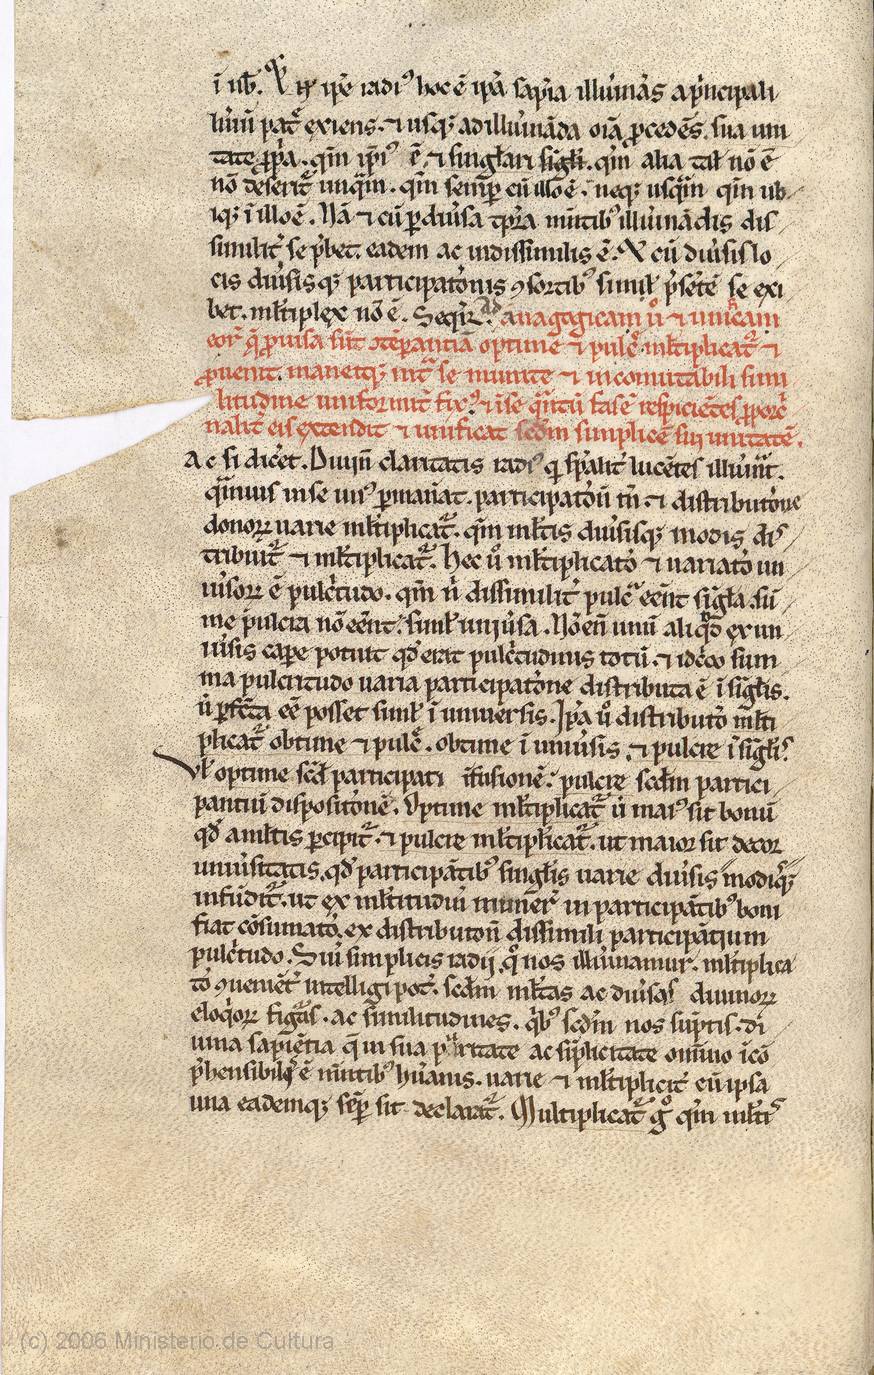 ī ub̄. Et ip̄e radi⁹ hoc ē ip̄a sap̄ia illumīās a p̄ncipali
lumī pat̄ exiens. ⁊ usq̄ ad illumīāda oīa ꝓcedēs. sua uni
tate ꝓp̄a. qm̄ ip̄i⁹ ē ⁊ singlari sigl̄i. qm̄ alia tal̄ nō ē
nō deserit̄ unq̄m. qm̄ semꝑ cū illo ē. neq; usq̄m qm̄ ub
iq; ī illo ē. Nā ⁊ cū ꝑ diūsa tp̄ra mītib⁹ illumīādis dis
similit̄ se p̄bet. eadem ac indissimilis ē. Et cū diūsis lo
cis diūsisq; participatōnis ꝯsortib⁹ simul̄ p̄sētē se exi
bet. ml̄tiplex nō ē. Seqr̄. ad anagogicam ū ⁊ unificam
eoꝝ q̄ ꝓuisa sūt ꝯtēꝑantiā optime ⁊ pulc̄ ml̄tiplicat̄ ⁊
ꝓuenit. manetq; int̄ se munite ⁊ incōmutabili simi
litudine uniformit̄ fix⁹. ⁊ ī se q̄ntū fas ē respiciētes ꝓporc̄
nalit̄ eis extendit ⁊ unificat scd̄m simplicē sui unitatē.
Ac si dic̄et. Diuin̄ claritatis radi⁹ q̄ sp̄alit̄ lucētes illumīt̄.
q̄muis in se un⁹ ꝑmaneat. participatōū tn̄ ⁊ distributōne
donoꝝ uarie ml̄tiplicat̄. qm̄ ml̄tis diūsisq; modis dis
tribuit̄ ⁊ ml̄tiplicat̄. hec ū ml̄tiplicatō ⁊ uariatō un
iūsoꝝ ē pulc̄tudo. qm̄ n̄ dissimilit̄ pulc̄a eēnt sīgla. sū
me pulcra nō eēnt. simul̄ uniūsa. Nō enī unū aliq̄d ex un
iūsis capere potuit qd̄ erat pulc̄tudinis totū. ⁊ idc̄o sum
ma pulcritudo uaria participatōne distributa ē ī sīgl̄is.
ū ꝑfcta eē posset simul̄ ī uniuersis. Ip̄a ū distributō ml̄ti
plicat̄ obtime ⁊ pulc̄. obtime ī uniūsis. ⁊ pulcre ī sīgl̄is.
Ul̄ optime scd̄ participati īfusionē. pulcre scd̄m partici
pantiū dispositōnē. Optime ml̄tiplicat̄ ū mai⁹ sit bonū
qd̄ a ml̄tis ꝑcipit̄. ⁊ pulcre ml̄tiplicat̄. ut maior sit decor
uniūsitatis. qd̄ participātib⁹ singl̄is uarie diūsis modisq;
infūdit̄. ut ex ml̄titudini muneꝝ in participātib⁹ boni
fiat cōsumatō. ex distributōū dissimili participātium
pulc̄tudo. Siū simplicis radij q̄ nos illumīamur. ml̄tiplica
tō ꝯueniēt̄ intelligi pōt. scd̄m ml̄tas ac diūsas diuinoꝝ
eloq̄oꝝ figuras. ac similitudines. q̄b⁹ scd̄m nos sūptis. di
uina sapiētia q̄ in sua puritate ac sīplicitate omīno īcō
p̄hensibilis ē mītib⁹ hūanis. uarie ⁊ ml̄tiplicit̄ cū ipsa
una eademq; semꝑ sit declarat̄. Multiplicat̄ g° qm̄ ml̄tis
(c) 2006 Ministerio de Cultura